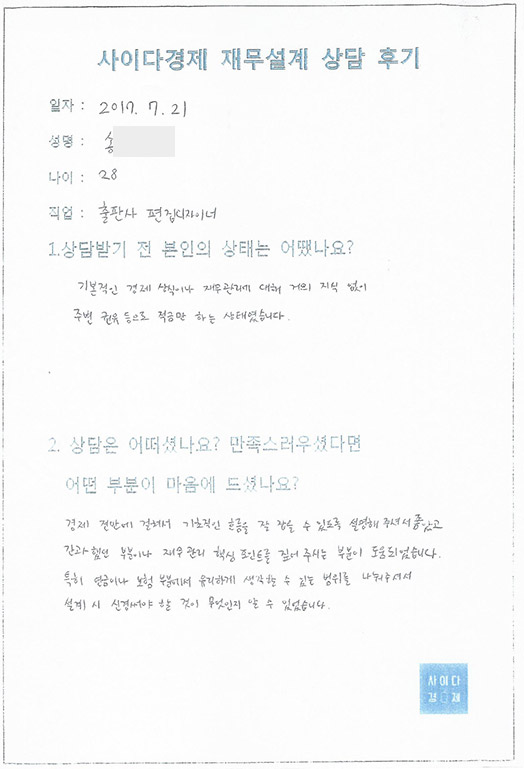 사이다경제 재무설계 상담 후기
일자 : 2017. 7. 21
성명 : 송
나이 : 28
직업 : 출판사 편집디자이너
1.상담받기 전 본인의 상태는 어땠나요?
기본적인 경제 상식이나 재무관리에 대해 거의 지식 없이
주변 권유 등으로 적금만 하는 상태였습니다.
2. 상담은 어떠셨나요? 만족스러우셨다면
어떤 부분이 마음에 드셨나요?
경제 전반에 걸쳐서 기초적인 흐름을 잘 잡을 수 있도록 설명해 주셔서 좋았고
간과했던 부분이나 재무관리 핵심 포인트를 짚어 주시는 부분이 도움되었습니다.
특히 연금이나 보험 부분에서 유리하게 생각할 수 있는 범위를 나눠주셔서
설계 시 신경써야 할 것이 무엇인지 알 수 있었습니다.
사이다
경제